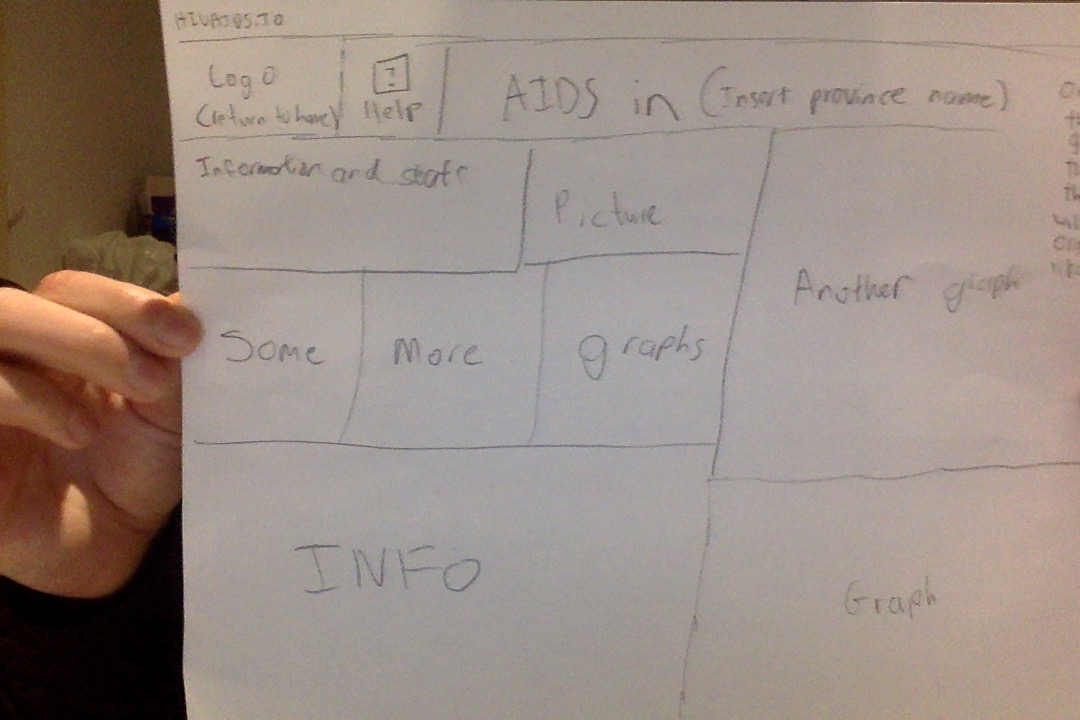 HIVAIDS.IO
Logo
(return to home)
?
Help
AIDS in (Insert province name)
Information and stats
Picture
Another graph
Some
More
graphs
INFO
Graph